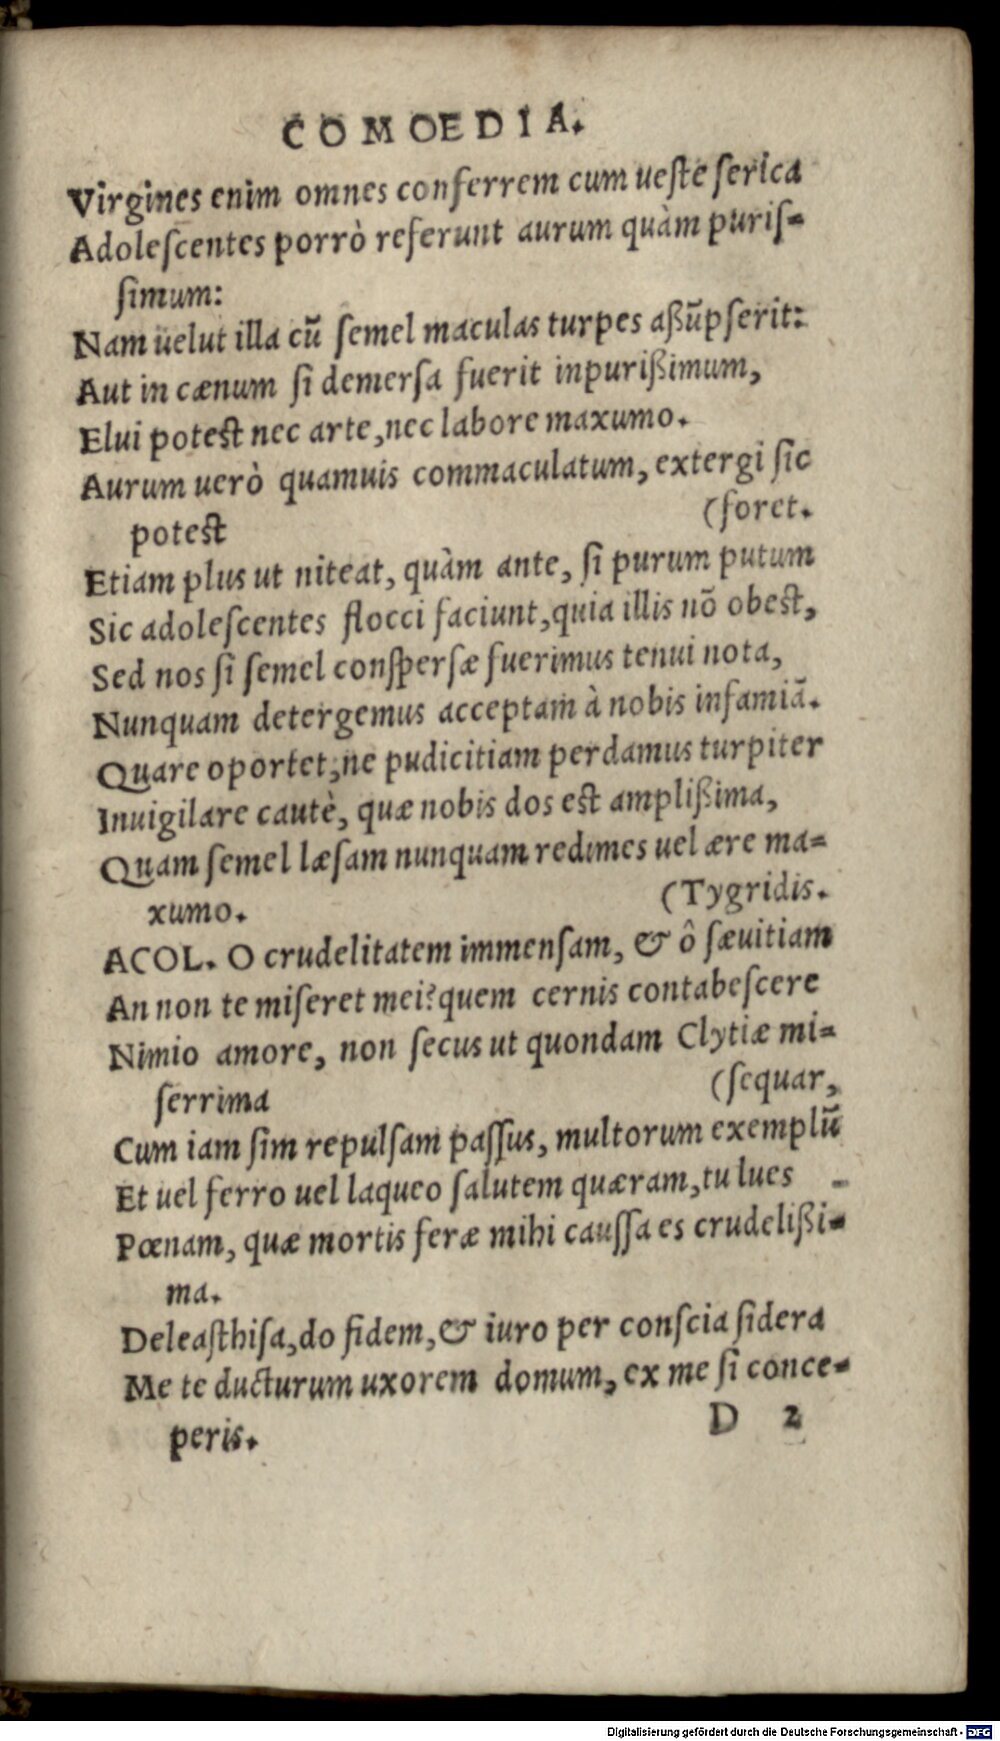 COMOEDIA.
Virgines enim omnes conferrem cum ueste serica
Adolescentes porrò referunt aurum quàm puris-
simum:
Nam uelut illa cū semel maculas turpes aßūpserit:
Aut in cænum si demersa fuerit inpurißimum,
Elui potest nec arte, nec labore maxumo.
Aurum uerò quamuis commaculatum, extergi sic
potest (foret.
Etiam plus ut niteat, quàm ante, si purum putum
Sic adolescentes flocci faciunt, quia illis nō obest,
Sed nos si semel conspersæ fuerimus tenui nota,
Nunquam detergemus acceptam à nobis infamiā.
Quare oportet, ne pudicitiam perdamus turpiter
Inuigilare cautè, quæ nobis dos est amplißima,
Quam semel læsam nunquam redimes uel ære ma-
xumo. (Tygridis.
ACOL. O crudelitatem immensam, & ô sæuitiam
An non te miseret mei? quem cernis contabescere
Nimio amore, non secus ut quondam Clytiæ mi-
serrima (sequar,
Cum iam sim repulsam passus, multorum exemplū
Et uel ferro uel laqueo salutem quæram, tu lues
Pœnam, quæ mortis feræ mihi caussa es crudelißi-
ma.
Deleasthisa, do fidem, & iuro per conscia sidera
Me te ducturum uxorem domum, ex me si conce-
peris. D 2
Digitalisierung gefördert durch die Deutsche Forschungsgemeinschaft - DFG